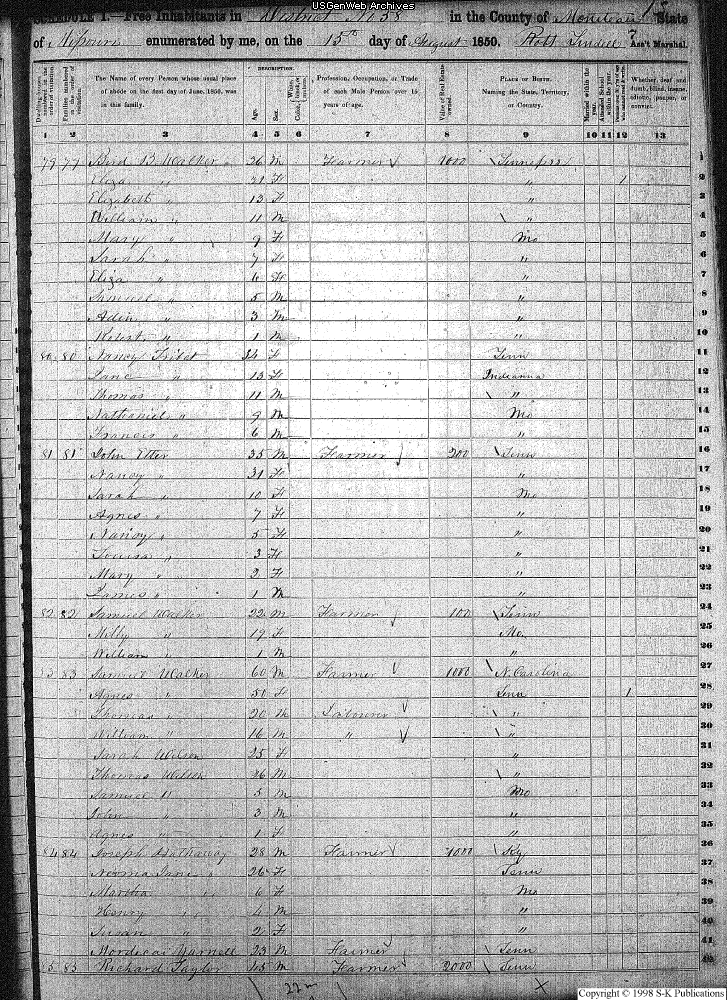 USGenWeb Archives
SCHEDULE I.—Free Inhabitants in District No 38 in the County of Moniteau State
of Missouri enumerated by me, on the 15th day of August 1850. Robt Ass't Marshal.
Dwelling-houses numbered in the order of visitation.
Families numbered in the order of visitation.
The Name of every Person whose usual place of abode on the first day of June, 1850, was in this family.
DESCRIPTION.
Age.
Sex.
White, black, or mulatto.
Color
Profession, Occupation, or Trade of each Male Person over 15 years of age.
Value of Real Estate owned.
PLACE OF BIRTH. Naming the State, Territory, or Country.
Married within the year.
Attended School within the year.
Whether deaf and dumb, blind, insane, idiotic, pauper, or convict.
1 2 3 4 5 6 7 8 9 10 11 12 13
79 77 Bird B. Walker 36 M Farmer 1000 Tennessee 1
Eliza " 31 F " 1 2
Elizabeth " 13 F " 3
William " 11 M " 4
Mary " 9 F Mo 5
Sarah " 7 F " 6
Eliza " 6 F " 7
Samuel " 5 M " 8
" 3 M " 9
Robert " 1 M " 10
80 80 Nancy 34 F Tenn 11
Jane " 13 F Indianna 12
Thomas " 11 M " 13
Nathaniel " 9 M Mo 14
Francis " 6 M " 15
81 81 John Etter 35 M Farmer 200 Tenn 16
Nancy " 31 F " 17
Sarah " 10 F Mo 18
Agnes " 7 F " 19
Nancy " 5 F " 20
Louisa " 3 F " 21
Mary " 2 F " 22
James " 1 M " 23
82 82 Samuel Walker 22 M Farmer 100 Tenn 24
Milly " 19 F Mo. 25
William " 1 M " 26
83 83 Samuel Walker 60 M Farmer 1000 N Carolina 27
Agnes " 50 F Tenn 1 28
Thomas " 20 M Labourer " 29
William " 16 M " " 30
Sarah Wilson 25 F " 31
Thomas Wilson 26 M " 32
Samuel " 5 M Mo 33
John " 3 M " 34
Agnes " 1 F " 35
84 84 Joseph Hathaway 28 M Farmer 1000 Ky 36
Jane " 26 F Tenn 37
Martha " 6 F Mo 38
Henry " 4 M " 39
Susan " 2 F " 40
Mordecai Yarnell 23 M Farmer Tenn 41
85 85 Richard Taylor M Farmer 2000 Tenn 42
22 m
Copyright © 1998 S-K Publications